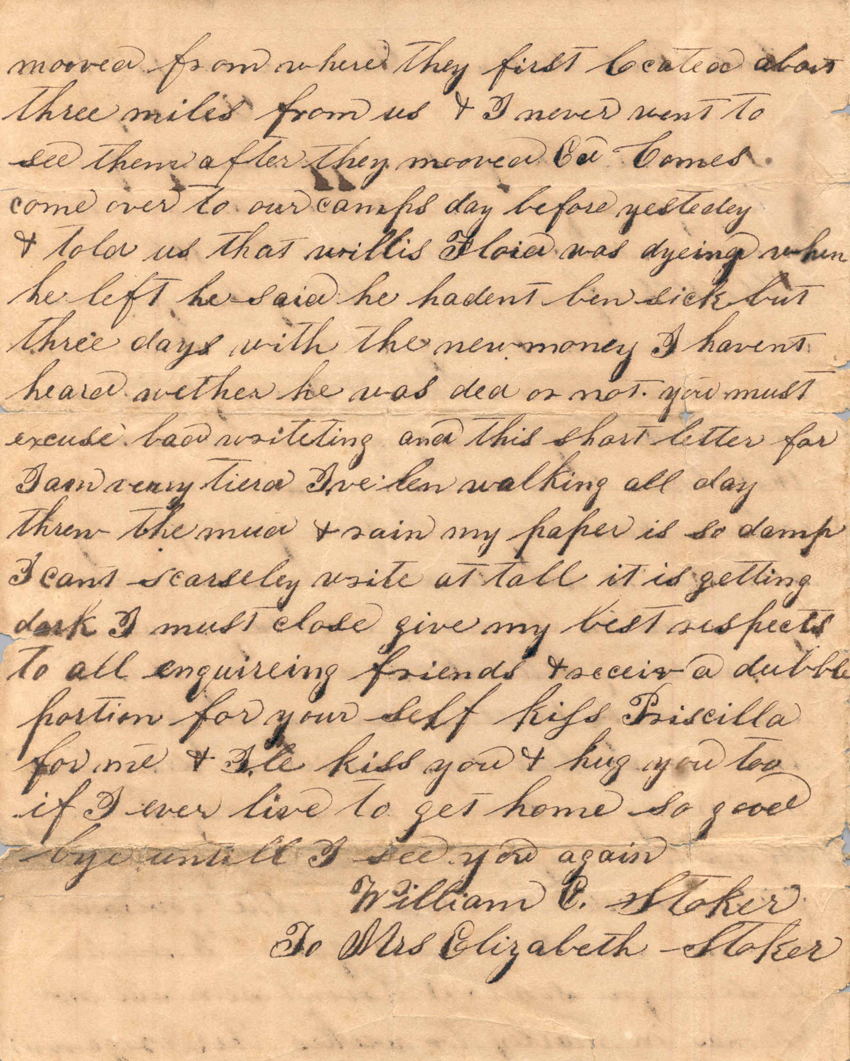 mooved from where they first located about
three miles from us & I never went to
see them after they mooved Ed Comes
come over to our camps day before yestedey
& told us that willis Floid was dyeing when
he left he said he hadent ben sick but
three days with the new money I havent
heard wether he was ded or not. you must
excuse bad writeting and this short letter for
I am verry tierd Ive ben walking all day
threw the mud & rain my paper is so damp
I cant scarseley write at tall it is getting
dark I must close give my best respects
to all enquireing friends & receiv a dubble
portion for your self kiss Priscilla
for me & Ile kiss you & hug you too
if I ever live to get home so good
bye untill I see you again
William E. Stoker
To Mrs Elizabeth Stoker